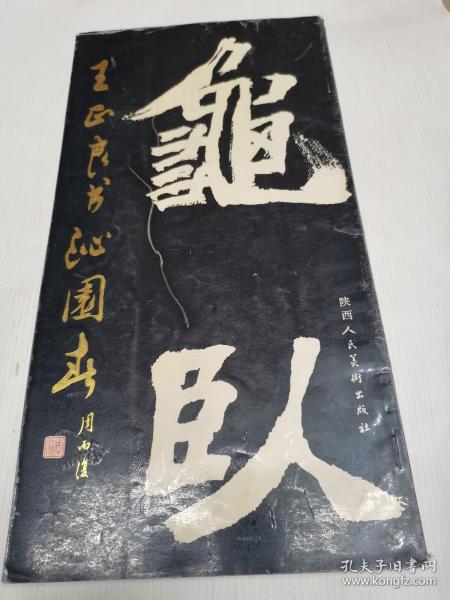 龜臥
王正良书沁園春
周而復
陕西人民美術出版社
孔夫子旧书网
www.kongfz.com